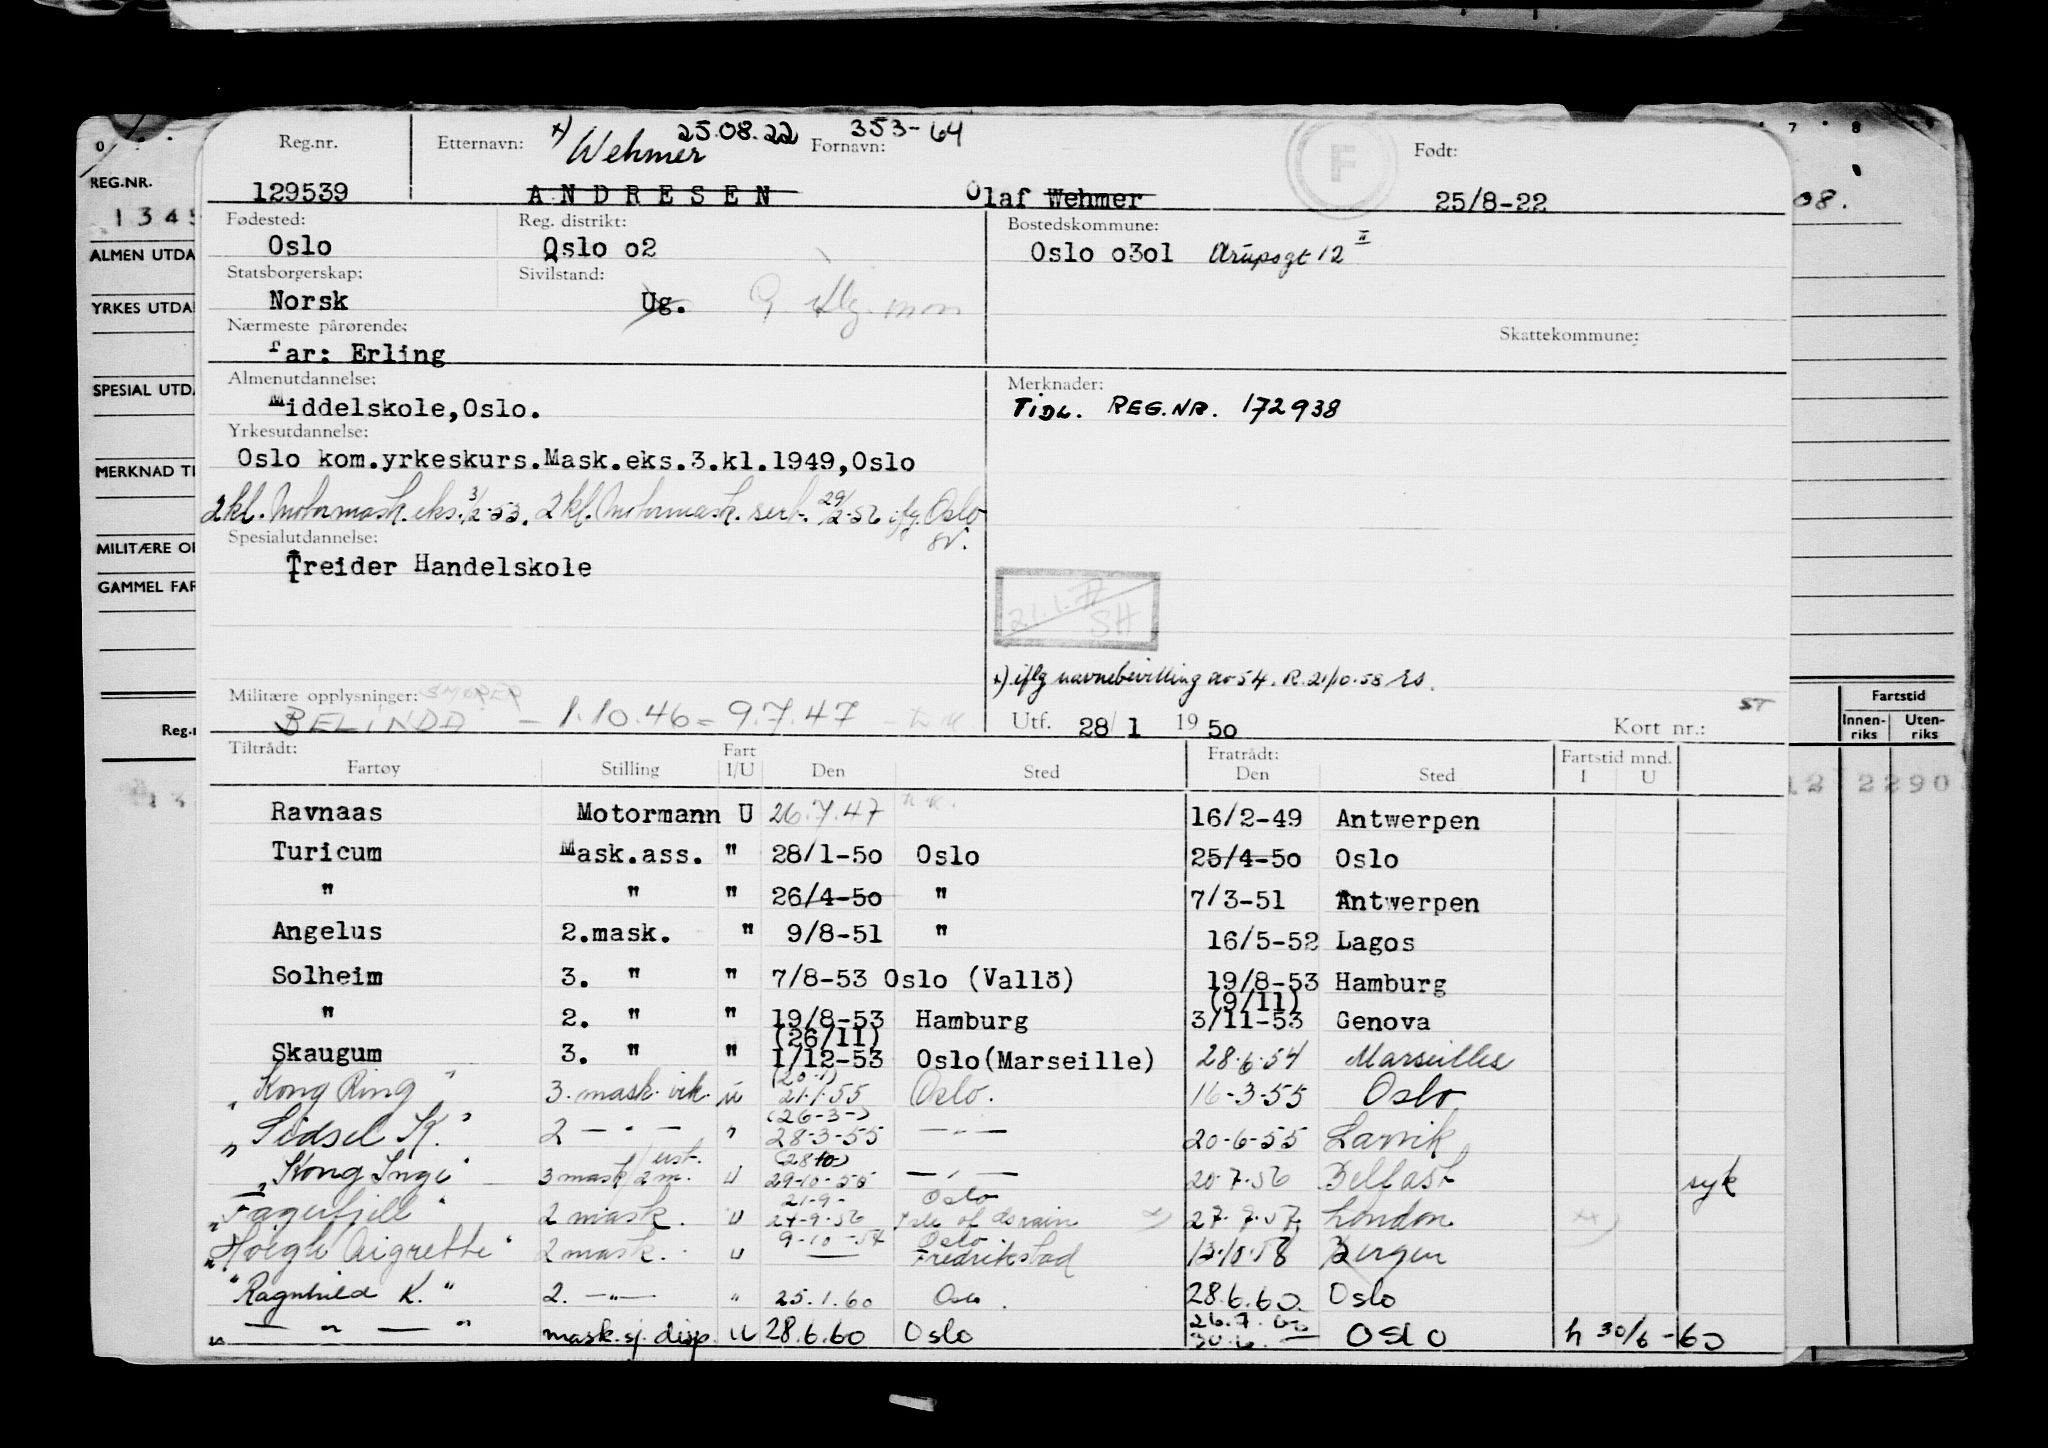 25.08.22 353-64
Reg.nr. Etternavn: x) Wehmer Fornavn: F Født:
129539 ANDRESEN Olaf Wehmer 25/8-22
Fødested: Reg. distrikt: Bostedskommune:
Oslo Oslo o2 Oslo o3o1 Arupsgt 12 II
Statsborgerskap: Sivilstand:
Norsk Ug. G. iflg. mon
Nærmeste pårørende: Skattekommune:
far: Erling
Almenutdannelse: Merknader:
Middelskole, Oslo. TIDL. REG.NR. 172938
Yrkesutdannelse:
Oslo kom.yrkeskurs.Mask.eks.3.kl.1949,Oslo
2 kl. Motormask. eks. 3/2-53. 2 kl. Motormask. sert. 29/2-56 ifg. Oslo
Spesialutdannelse:
Treider Handelskole
21.1.77
SH
x) iflg navnebevilling av 54. R. 21/10-58
Militære opplysninger: SMØRER ST
BELINDA - 1.10.46 = 9.7.47 Utf. 28/1 1950 Kort nr.:
Tiltrådt: Fart Fratrådt: Fartstid mnd.
Fartøy Stilling I/U Den Sted Den Sted I U
Ravnaas Motormann U 26.7.47 16/2-49 Antwerpen
Turicum Mask.ass. " 28/1-50 Oslo 25/4-50 Oslo
" " " 26/4-50 " 7/3-51 Antwerpen
Angelus 2.mask. " 9/8-51 " 16/5-52 Lagos
Solheim 3. " " 7/8-53 Oslo (Vallö) 19/8-53 Hamburg
(9/11)
" 2. " " 19/8-53 Hamburg 3/11-53 Genova
(26/11)
Skaugum 3. " " 1/12-53 Oslo(Marseille) 28.6.54 Marseilles
(20.1)
"Kong Ring" 3. mask. vik. u 21.1.55 Oslo. 16-3-55 Oslo
(26-3-)
"Sidsel K." 2 — " — " 28-3-55 — " — 20-6-55 Larvik
(28/10)
"Kong Inge" 3 mask/2 m. u 29-10-55 — " — 20.7.56 Belfast syk
21-9- Oslo
"Fagerfjell" 2 mask. u 24-9-56 Isle of Grain 27.9.57 London
9-10-57 Oslo
"Høegh Aigrette" 2 mask. u — Fredrikstad 13.10.58 Bergen
"Ragnhild K." 2. — " — " 25.1.60 Oslo 28.6.60. Oslo
26.7.60
" — " — " mask.sj. disp. U 28.6.60 Oslo 30.6. — OSLO h 30/6-60
REG.NR.
1345
ALMEN UTDA
YRKES UTDA
SPESIAL UTDA
MERKNAD TI
MILITÆRE OP
GAMMEL FAR
Reg.n
7 8
08.
Fartstid
Innen-riks Uten-riks
12 2290